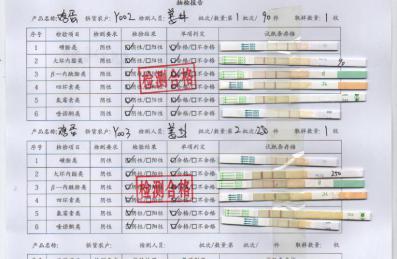 抽检报告
产品名称:鸡蛋 供货农户:Y002 检测人员: 批次/数量:第1批次/90件 取样数量:1枚
序号 检验项目 检测要求 检验结果 单项判定 试纸条存储
1 磺胺类 阴性 ☑阴性/□阳性 ☑合格/□不合格
2 大环内酯类 阴性 ☑阴性/□阳性 ☑合格/□不合格 90
3 β-内酰胺类 阴性 ☑阴性/□阳性 ☑合格/□不合格
4 四环素类 阴性 ☑阴性/□阳性 ☑合格/□不合格
5 氟霉素类 阴性 ☑阴性/□阳性 ☑合格/□不合格
6 喹诺酮类 阴性 ☑阴性/□阳性 ☑合格/□不合格
检测合格
产品名称:鸡蛋 供货农户:Y003 检测人员: 批次/数量:第2批次/250件 取样数量:1枚
序号 检验项目 检测要求 检验结果 单项判定 试纸条存储
1 磺胺类 阴性 ☑阴性/□阳性 ☑合格/□不合格
2 大环内酯类 阴性 ☑阴性/□阳性 ☑合格/□不合格 250
3 β-内酰胺类 阴性 ☑阴性/□阳性 ☑合格/□不合格
4 四环素类 阴性 ☑阴性/□阳性 ☑合格/□不合格
5 氟霉素类 阴性 ☑阴性/□阳性 ☑合格/□不合格
6 喹诺酮类 阴性 ☑阴性/□阳性 ☑合格/□不合格
检测合格
产品名称: 供货农户: 检测人员: 批次/数量:第 批次/ 件 取样数量: 枚